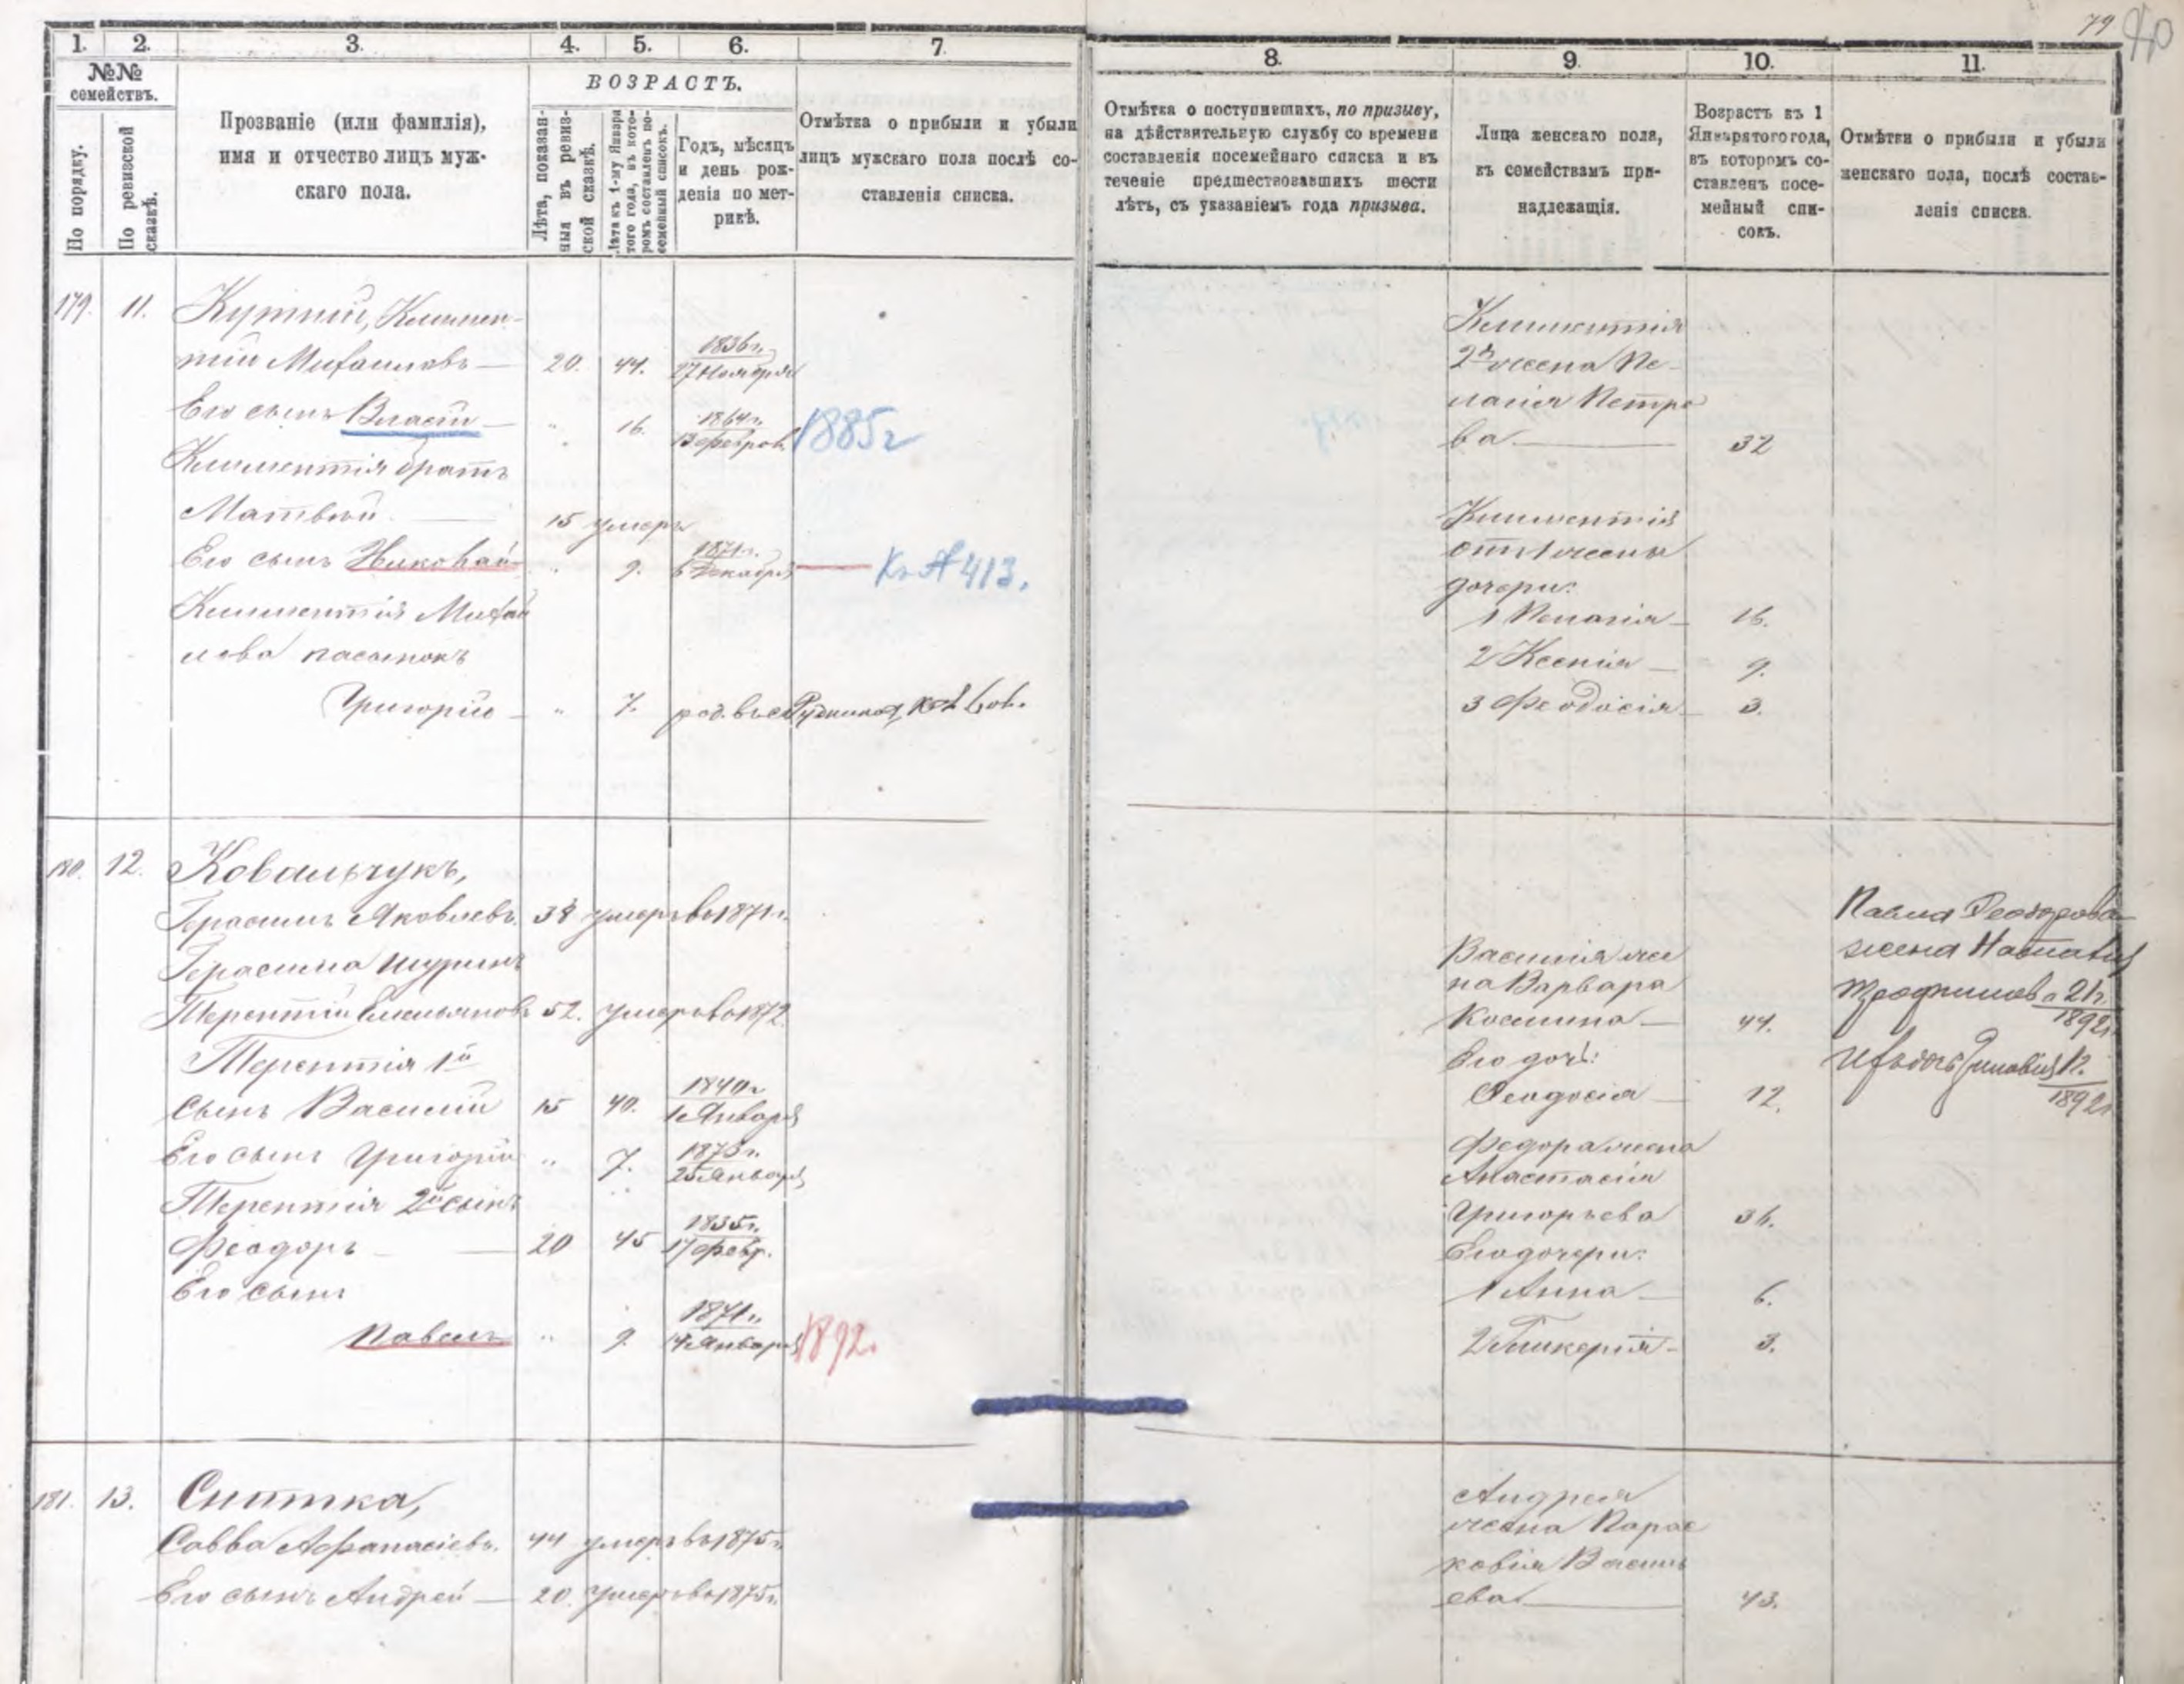 79
80
1. 2. 3. 4. 5. 6. 7.
№№ семействъ.
По порядку.
По ревизской сказкѣ.
Прозваніе (или фамилія),
имя и отчество лицъ муж-
скаго пола.
ВОЗРАСТЪ.
Лѣта, показан-
ныя въ ревиз-
ской сказкѣ.
Лѣта къ 1-му Января
того года, въ кото-
ромъ составленъ по-
семейный списокъ.
Годъ, мѣсяцъ
и день рож-
денія по мет-
рикѣ.
Отмѣтка о прибыли и убыли
лицъ мужскаго пола послѣ со-
ставленія списка.
179. 11. Кутний, Климен-
тий Михаиловъ — 20. 44. 1836г.
27 Ноября
Его сынъ Власій — " 16. 1864г.
13 Феврал. 1885г
Климентія братъ
Матвѣй. — 15 умеръ
Его сынъ Николай — " 9. 1871г.
6 Декабря — К. А 413.
Климентія Михай
лова пасынокъ
Григорій — " 7. род. въ с.
180. 12. Ковальчукъ,
Герасимъ Яковлевъ. 38 умеръ въ 1871г.
Герасима шуринъ
Терентій Емельяновъ 52. умеръ въ 1872.
Терентія 1й
сынъ Василій 15 40. 1840г.
1 Января
Его сынъ Григорій " 7. 1873г.
25 Января
Терентія 2й сынъ
Феодоръ — 20 45 1835г.
17 Февр.
Его сынъ
Павелъ " 9. 1871г.
14 Января 1892.
181. 13. Снитка,
Савва Афанасіевъ. 44 умеръ въ 1875г.
Его сынъ Андрей — 20. умеръ въ 1875г.
8. 9. 10. 11.
Отмѣтка о поступившихъ, по призыву,
на дѣйствительную службу со времени
составленія посемейнаго списка и въ
теченіе предшествовавшихъ шести
лѣтъ, съ указаніемъ года призыва.
Лица женскаго пола,
къ семействамъ при-
надлежащія.
Возрастъ къ 1
Января того года,
въ которомъ со-
ставленъ посе-
мейный спи-
сокъ.
Отмѣтки о прибыли и убыли
женскаго пола, послѣ состав-
ленія списка.
Климентія
2я жена Пе-
лагія Петро
ва — 32
Климентія
отъ 1 жены
дочери:
1 Пелагія — 16.
2 Ксенія — 9.
3 Феодосія — 3.
Василія же
на Варвара
Космина — 44.
Его дочь:
Феодосія — 12.
Федора жена
Анастасія
Григорьева 36.
Его дочери:
1 Анна — 6.
2 Гликерія — 3.
Павла Феодорова
жена Наталія
Трофимова 21г.
1892г.
1892г
Андрея
жена Парас
ковія Василь
ева — 43.